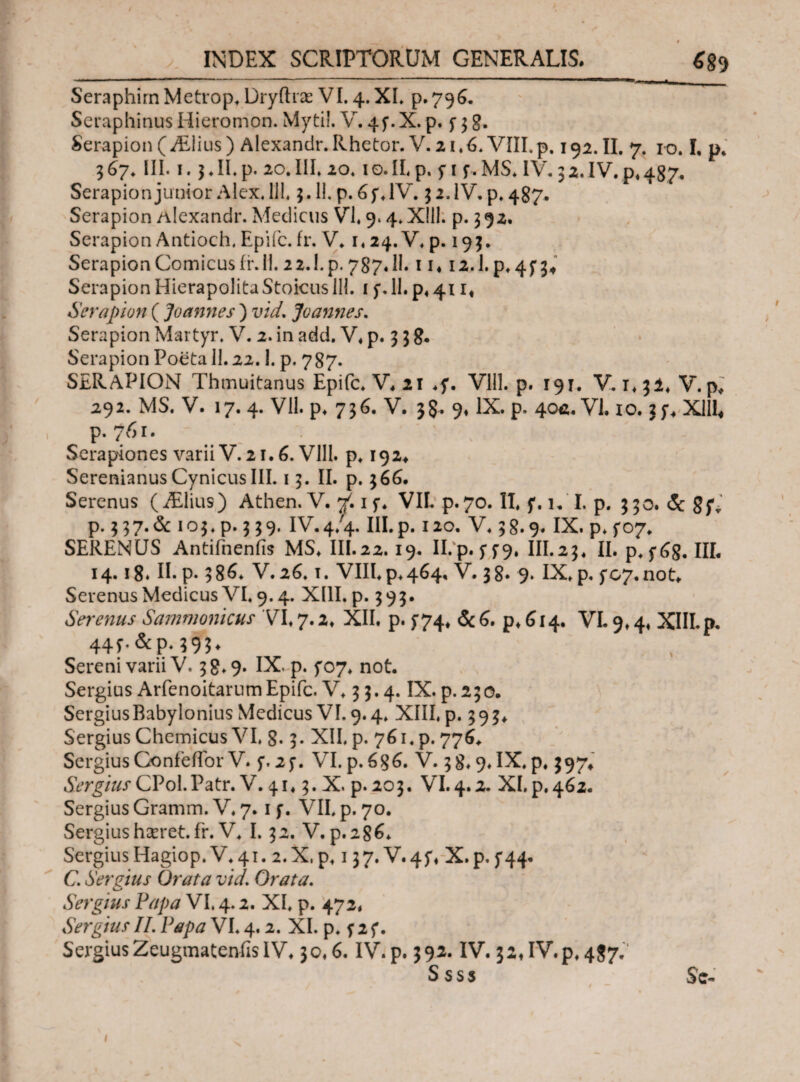 INDEX SCRIPTORUM GENERALIS. 689
Seraphim Metrop. Dryſtræ VI. 4. XI. p. 796.
Seraphinus Hieromon. Mytil. V. 45. X. p. 538.
Serapion (Ælius) Alexandr. Rhetor. V. 21. 6. VIII. p. 192. II. 7. 10. I. p.
367. III. 1. 3. II. p. 20. III. 20. 10. II. p. 515. MS. IV. 32. IV. p. 487.
Serapion junior Alex. III. 3. II. p. 65. IV. 32. IV. p. 487.
Serapion Alexandr. Medicus VI. 9. 4. XIII. p. 392.
Serapion Antioch. Epiſc. fr. V. 1. 24. V. p. 193.
Serapion Comicus fr. II. 22. I. p. 787. II. 11. 12. I. p. 453.
Serapion Hierapolita Stoicus III. 15. II. p. 411.
Serapion (Joannes) vid. Joannes.
Serapion Martyr. V. 2. in add. V. p. 338.
Serapion Poëta II. 22. I. p. 787.
SERAPION Thmuitanus Epiſc. V. 21 .5. VIII. p. 191. V. 1. 32. V. p.
292. MS. V. 17. 4. VII. p. 736. V. 38. 9. IX. p. 400. VI. 10. 35. XIII.
p. 761.
Serapiones varii V. 21. 6. VIII. p. 192.
Serenianus Cynicus III. 13. II. p. 366.
Serenus (Ælius) Athen. V. 7. 15. VII. p. 70. II. 5. 1. I. p. 330. & 85.
p. 337. & 103. p. 339. IV. 4. 4. III. p. 120. V. 38. 9. IX. p. 507.
SERENUS Antiſnenſis MS. III. 22. 19. II. p. 559. III. 23. II. p. 568. III.
14. 18. II. p. 386. V. 26. 1. VIII. p. 464. V. 38. 9. IX. p. 507. not.
Serenus Medicus VI. 9. 4. XIII. p. 393.
Serenus Sammonicus VI. 7. 2. XII. p. 574. & 6. p. 614. VI. 9. 4. XIII. p.
445. & p. 393.
Sereni varii V. 38. 9. IX. p. 507. not.
Sergius Arſenoitarum Epiſc. V. 33. 4. IX. p. 230.
Sergius Babylonius Medicus VI. 9. 4. XIII. p. 393.
Sergius Chemicus VI. 8. 3. XII. p. 761. p. 776.
Sergius Confeſſor V. 5. 25. VI. p. 686. V. 38. 9. IX. p. 397.
Sergius CPol. Patr. V. 41. 3. X. p. 203. VI. 4. 2. XI. p. 462.
Sergius Gramm. V. 7. 15. VII. p. 70.
Sergius hæret. fr. V. I. 32. V. p. 286.
Sergius Hagiop. V. 41. 2. X. p. 137. V. 45. X. p. 544.
C. Sergius Orata vid. Orata.
Sergius Papa VI. 4. 2. XI. p. 472.
Sergius II. Papa VI. 4. 2. XI. p. 525.
Sergius Zeugmatenſis IV. 30. 6. IV. p. 392. IV. 32. IV. p. 487.
S s s s Se-